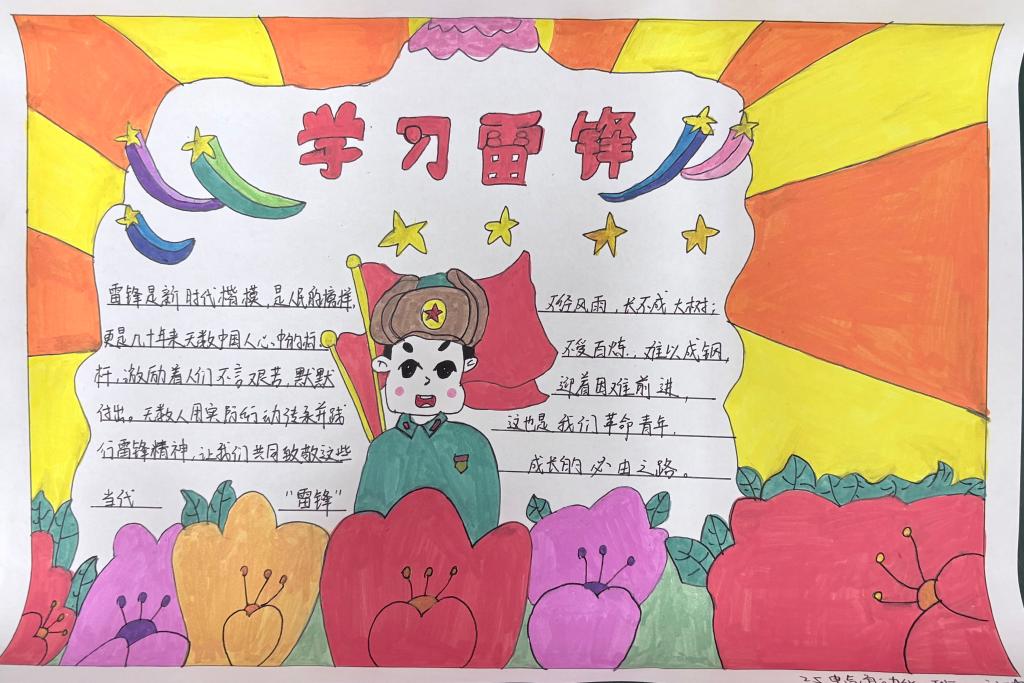 学习雷锋
雷锋是新时代楷模,是人民的榜样,
更是几十年来无数中国人心中的标
杆,激励着人们不言艰苦,默默
付出。无数人用实际行动传承并践
行雷锋精神,让我们共同致敬这些
当代 “雷锋”
不经风雨,长不成大树;
不受百炼,难以成钢,
迎着困难前进,
这也是我们革命青年,
成长的必由之路。